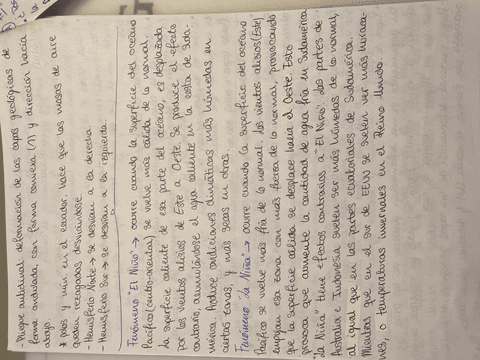 - Pliegue anticlinal: deformación de las capas geológicas de
forma ondulada, con forma convexa (∩) y dirección hacia
abajo.
y mín en el ecuador, hace que las masas de aire
octogadas desviándose:
- Hemisferio Norte → se desvían a la derecha.
- Hemisferio Sur → se desvían a la izquierda.
Fenómeno "El Niño" → ocurre cuando la superficie del océano
Pacífico (centro-oriental) se vuelve más cálida de lo normal.
La superficie caliente de esa parte del océano, es desplazada
por los vientos alisios de Este a Oeste. Se produce el efecto
contrario, acumulándose el agua caliente en la costa de Suda-
mérica. Produce condiciones climáticas más húmedas en
ciertas zonas, y más secas en otras.
Fenómeno "La Niña" → ocurre cuando la superficie del océano
Pacífico se vuelve más fría de lo normal. Los vientos alisios (Este)
empujan esa zona con más fuerza de lo normal, provocando
que la superficie cálida se desplace hacia el Oeste. Esto
provoca que aumente la cantidad de agua fría en Sudamérica
"La Niña" tiene efectos contrarios a "El Niño". Las partes de
Australia e Indonesia suelen ser más húmedas de lo normal,
al igual que en las partes ecuatoriales de Sudamérica.
Mientras que en el sur de EEUU se suelen ver más huraca-
nes, o temperaturas invernales en el Reino Unido.